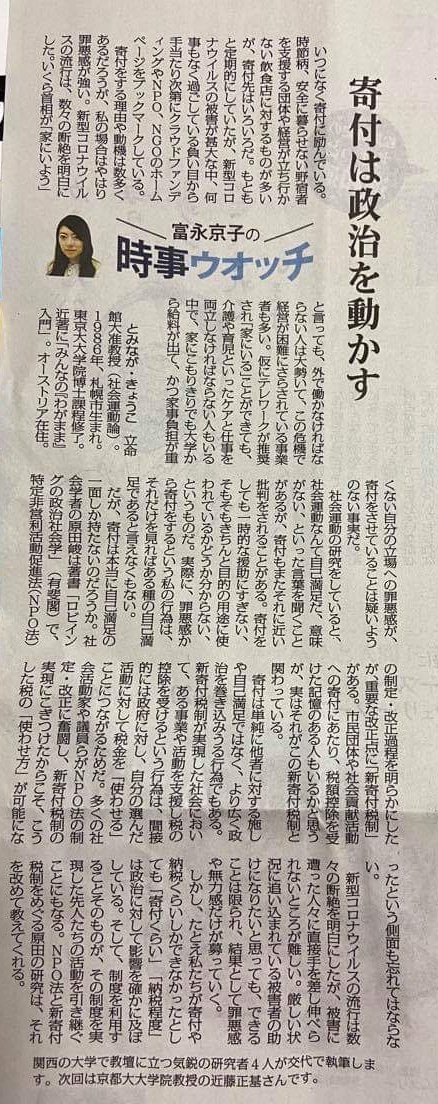 寄付は政治を動かす
富永京子の
時事ウオッチ
いつになく寄付に励んでいる。
時節柄、安全に暮らせない野宿者
を支援する団体や経営が立ち行か
ない飲食店に対するものが多い
が、寄付先はいろいろだ。もとも
と定期的にしていたが、新型コロ
ナウイルスの被害が甚大な中、何
事もなく過ごしている負い目から
手当たり次第にクラウドファンデ
ィングやNPO、NGOのホーム
ページをブックマークしている。
寄付をする理由や動機は数多く
あるだろうが、私の場合はやはり
罪悪感が強い。新型コロナウイル
スの流行は、数々の断絶を明白に
した。いくら首相が「家にいよう」
と言っても、外で働かなければな
らない人は大勢いて、この危機で
経営が困難にさらされている事業
者も多い。仮にテレワークが推奨
され「家にいる」ことができても、
介護や育児といったケアと仕事を
両立しなければならない人もいる
中で、家にこもりきりでも大学か
ら給料が出て、かつ家事負担が重
とみなが・きょうこ 立命
館大准教授(社会運動論)。
1986年、札幌市生まれ。
東京大大学院博士課程修了。
近著に「みんなの『わがまま』
入門」。オーストリア在住。
くない自分の立場への罪悪感が、
寄付をさせていることは疑いよう
のない事実だ。
社会運動の研究をしていると、
社会運動なんて自己満足だ、意味
がない、といった言葉を聞くこと
があるが、寄付もまたそれに近い
批判をされることがある。寄付を
しても一時的な援助にすぎない、
そもそもきちんと目的の用途に使
われているかどうか分からない、
というものだ。実際に、罪悪感か
ら寄付をするという私の行為は、
それだけを見ればある種の自己満
足であると言えなくもない。
だが、寄付は本当に自己満足の
一面しか持たないのだろうか。社
会学者の原田峻は著書「ロビイン
グの政治社会学」(有斐閣)で、
特定非営利活動促進法(NPO法)
の制定・改正過程を明らかにした
が、重要な改正点に「新寄付税制」
がある。市民団体や社会貢献活動
への寄付にあたり、税額控除を受
けた記憶のある人もいるかと思う
が、実はそれがこの新寄付税制と
関わっている。
寄付は単純に他者に対する施し
や自己満足ではなく、より広く政
治を巻き込みうる行為でもある。
新寄付税制が実現した社会におい
て、ある事業や活動を支援し税の
控除を受けるという行為は、間接
的には政府に対し、自分の選んだ
活動に対して税金を「使わせる」
ことにつながるためだ。多くの社
会活動家や議員らがNPO法の制
定・改正に奮闘し、新寄付税制の
実現にこぎつけたからこそ、こう
した税の「使わせ方」が可能にな
ったという側面も忘れてはならな
い。
新型コロナウイルスの流行は数
々の断絶を明白にしたが、被害に
遭った人々に直接手を差し伸べら
れないところが難しい。厳しい状
況に追い込まれている被害者の助
けになりたいと思っても、できる
ことは限られ、結果として罪悪感
や無力感だけが募っていく。
しかし、たとえ私たちが寄付や
納税ぐらいしかできなかったとし
ても「寄付ぐらい」「納税程度」
は政治に対して影響を確かに及ぼ
している。そして、制度を利用す
ることそのものが、その制度を実
現した先人たちの活動を引き継ぐ
ことにもなる。NPO法と新寄付
税制をめぐる原田の研究は、それ
を改めて教えてくれる。
関西の大学で教壇に立つ気鋭の研究者4人が交代で執筆しま
す。次回は京都大大学院教授の近藤正基さんです。